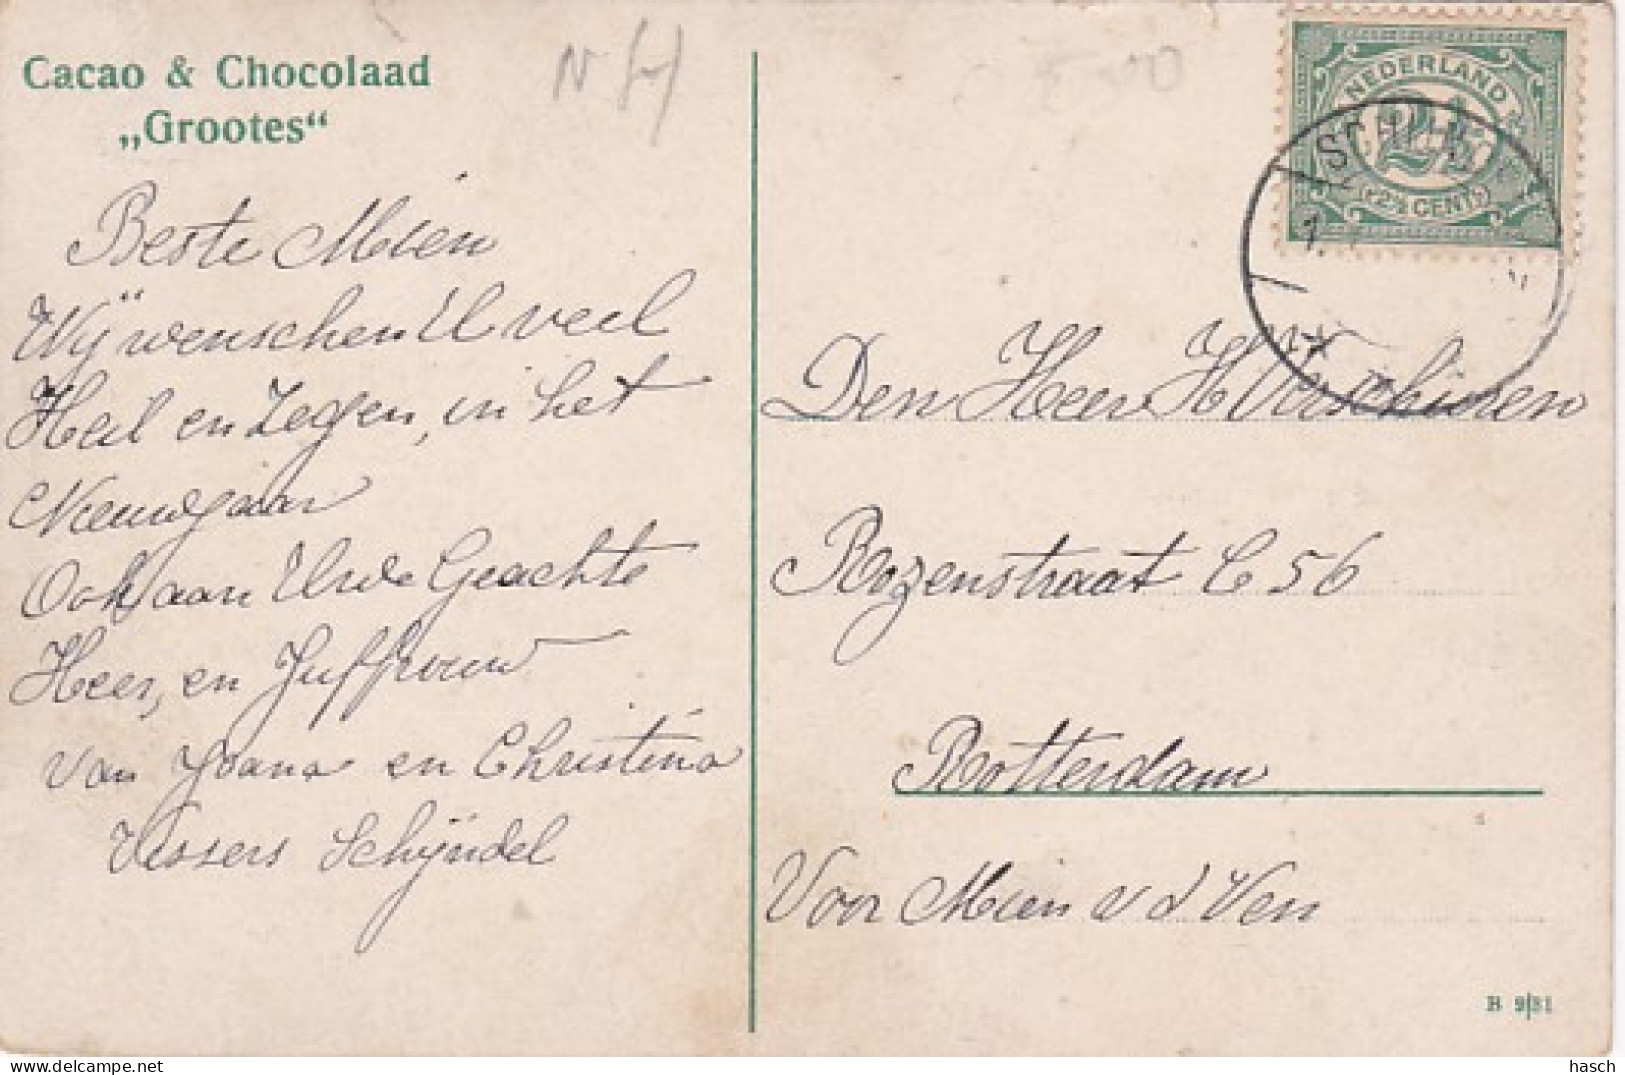 Cacao & Chocolaad
„Grootes“
N H
NEDERLAND
2½
2½ CENT
SCHIJN
1
Beste Mien
Wij wenschen U veel
Heil en Zegen, in het
Nieuwjaar
Ook aan Uwe Geachte
Heer, en Juffrouw
van Joana en Christina
Vissers Schijndel
Den Heer H Verschuren
Rozenstraat C 56
Rotterdam
Voor Mien v d Ven
B 9/31
hasch